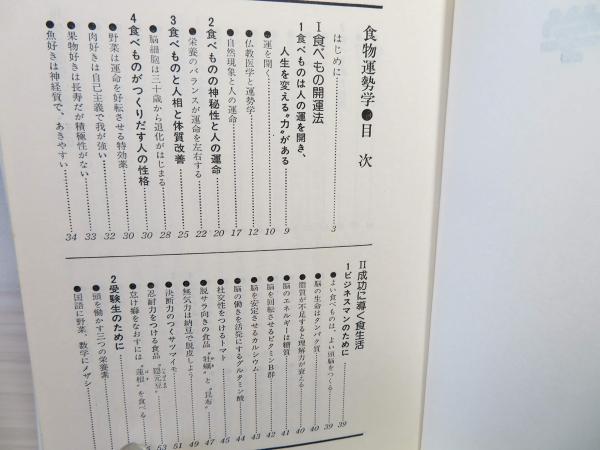 食物運勢学●目次
はじめに 3
Ⅰ食べもの開運法
1食べものは人の運を開き、
人生を変える“力”がある 9
●運を開く 10
●仏教医学と運勢学 12
●自然現象と人の運命 17
2食べものの神秘性と人の運命 20
●栄養のバランスが運命を左右する 22
3食べものと人相と体質改善 25
●脳細胞は三十歳から退化がはじまる 28
4食べものがつくりだす人の性格 30
●野菜は運命を好転させる特効薬 30
●肉好きは自己主義で我が強い 32
●果物好きは長寿だが積極性がない 33
●魚好きは神経質で、あきやすい 34
Ⅱ成功に導く食生活
1ビジネスマンのために 39
●よい食べものは、よい頭脳をつくる 39
●脳の生命はタンパク質 40
●脂質が不足すると理解力が衰える 40
●脳のエネルギーは糖質 41
●脳を回転させるビタミンB群 42
●脳を安定させるカルシウム 43
●脳の働きを活発にするグルタミン酸 44
●社交性をつけるトマト 45
●脱サラ向きの食品“牡蠣”と“昆布” 47
●無気力は納豆で脱皮しよう 49
●決断力のつくサツマイモ 51
●忍耐力をつける食品“隠元豆” 53
●怠け癖をなおすには“蓮根”を食べる 5
2受験生のために
●頭を働かす三つの栄養素
●国語に野菜、数学にメザシ